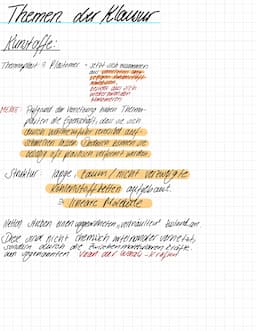 Themen der Klausur
Kunstoffe:
Thermoplast & Plastomer → setzt sich zusammen
aus
MERKE: Aufgrund der Vernetzung haben Thermo-
plasten die Eigenschaft, dass sie sich
durch Wärmezufuhr reversibel auf-
schmelzen lassen. Dadurch können sie
beliebig oft plastisch verformt werden.
Struktur: lange, kaum / nicht verzweigte
Kohlenstoffketten aufgebaut.
⇒ lineare Moleküle
Ketten streben einen ungeordneten, verknäulten Zustand an.
Diese sind nicht chemisch miteinander vernetzt,
sondern durch die zwischenmolekularen Kräfte
den sogenannten Van der Waals-Kräften